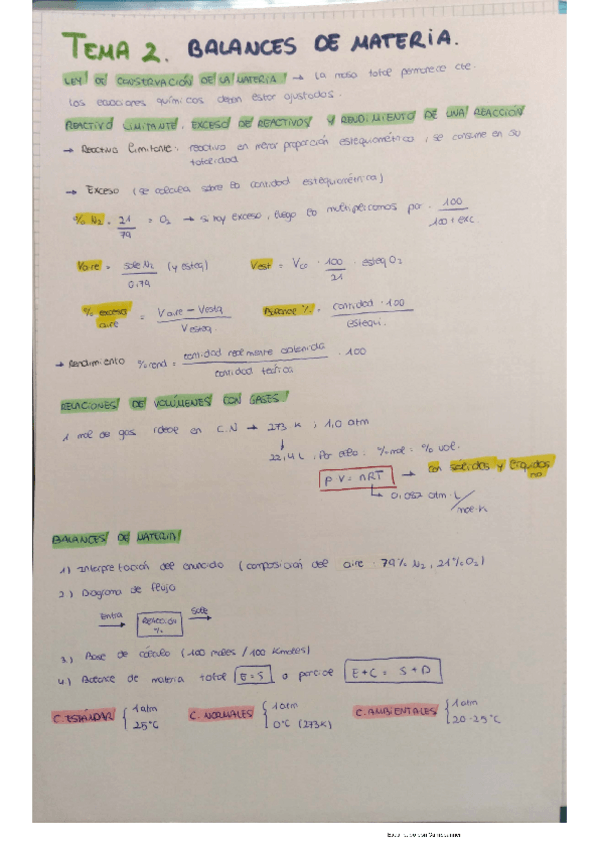 TEMA 2. BALANCES DE MATERIA.
LEY DE CONSERVACIÓN DE LA MATERIA → la masa total permanece cte.
las ecuaciones químicas deben estar ajustadas.
REACTIVO LIMITANTE, EXCESO DE REACTIVOS Y RENDIMIENTO DE UNA REACCIÓN
→ Reactivo limitante: reactivo en menor proporción estequiométrica, se consume en su
totalidad
→ Exceso (se calcula sobre la cantidad estequiométrica)
% N2 · 21/79 = O2 → si hay exceso, luego lo multiplicamos por · 100/100+exc.
Vaire = sale N2/0,79 (y esteq) Vest = Vco · 100/21 · esteq O2
% exceso aire = Vaire - Vestq/Vesteq. Balance % = cantidad · 100/estequi.
→ Rendimiento %rend = cantidad realmente obtenida/cantidad teórica · 100
RELACIONES DE VOLÚMENES CON GASES
1 mol de gas ideal en C.N → 273 K, 1,0 atm
↓
22,4 L, Por ello: %mol = % vol.
PV = nRT → con sólidos y líquidos no
↳ 0,082 atm·L/mol·K
BALANCES DE MATERIA
1) Interpretación del enunciado (composición del aire: 79% N2, 21% O2)
2) Diagrama de flujo
Entra → REACCIÓN % Sale →
3) Base de cálculo (100 moles / 100 Kmoles)
4) Balance de materia total E=S o parcial E+C = S+D
C. ESTÁNDAR { 1 atm 25°C C. NORMALES { 1 atm 0°C (273K) C. AMBIENTALES { 1 atm 20-25°C